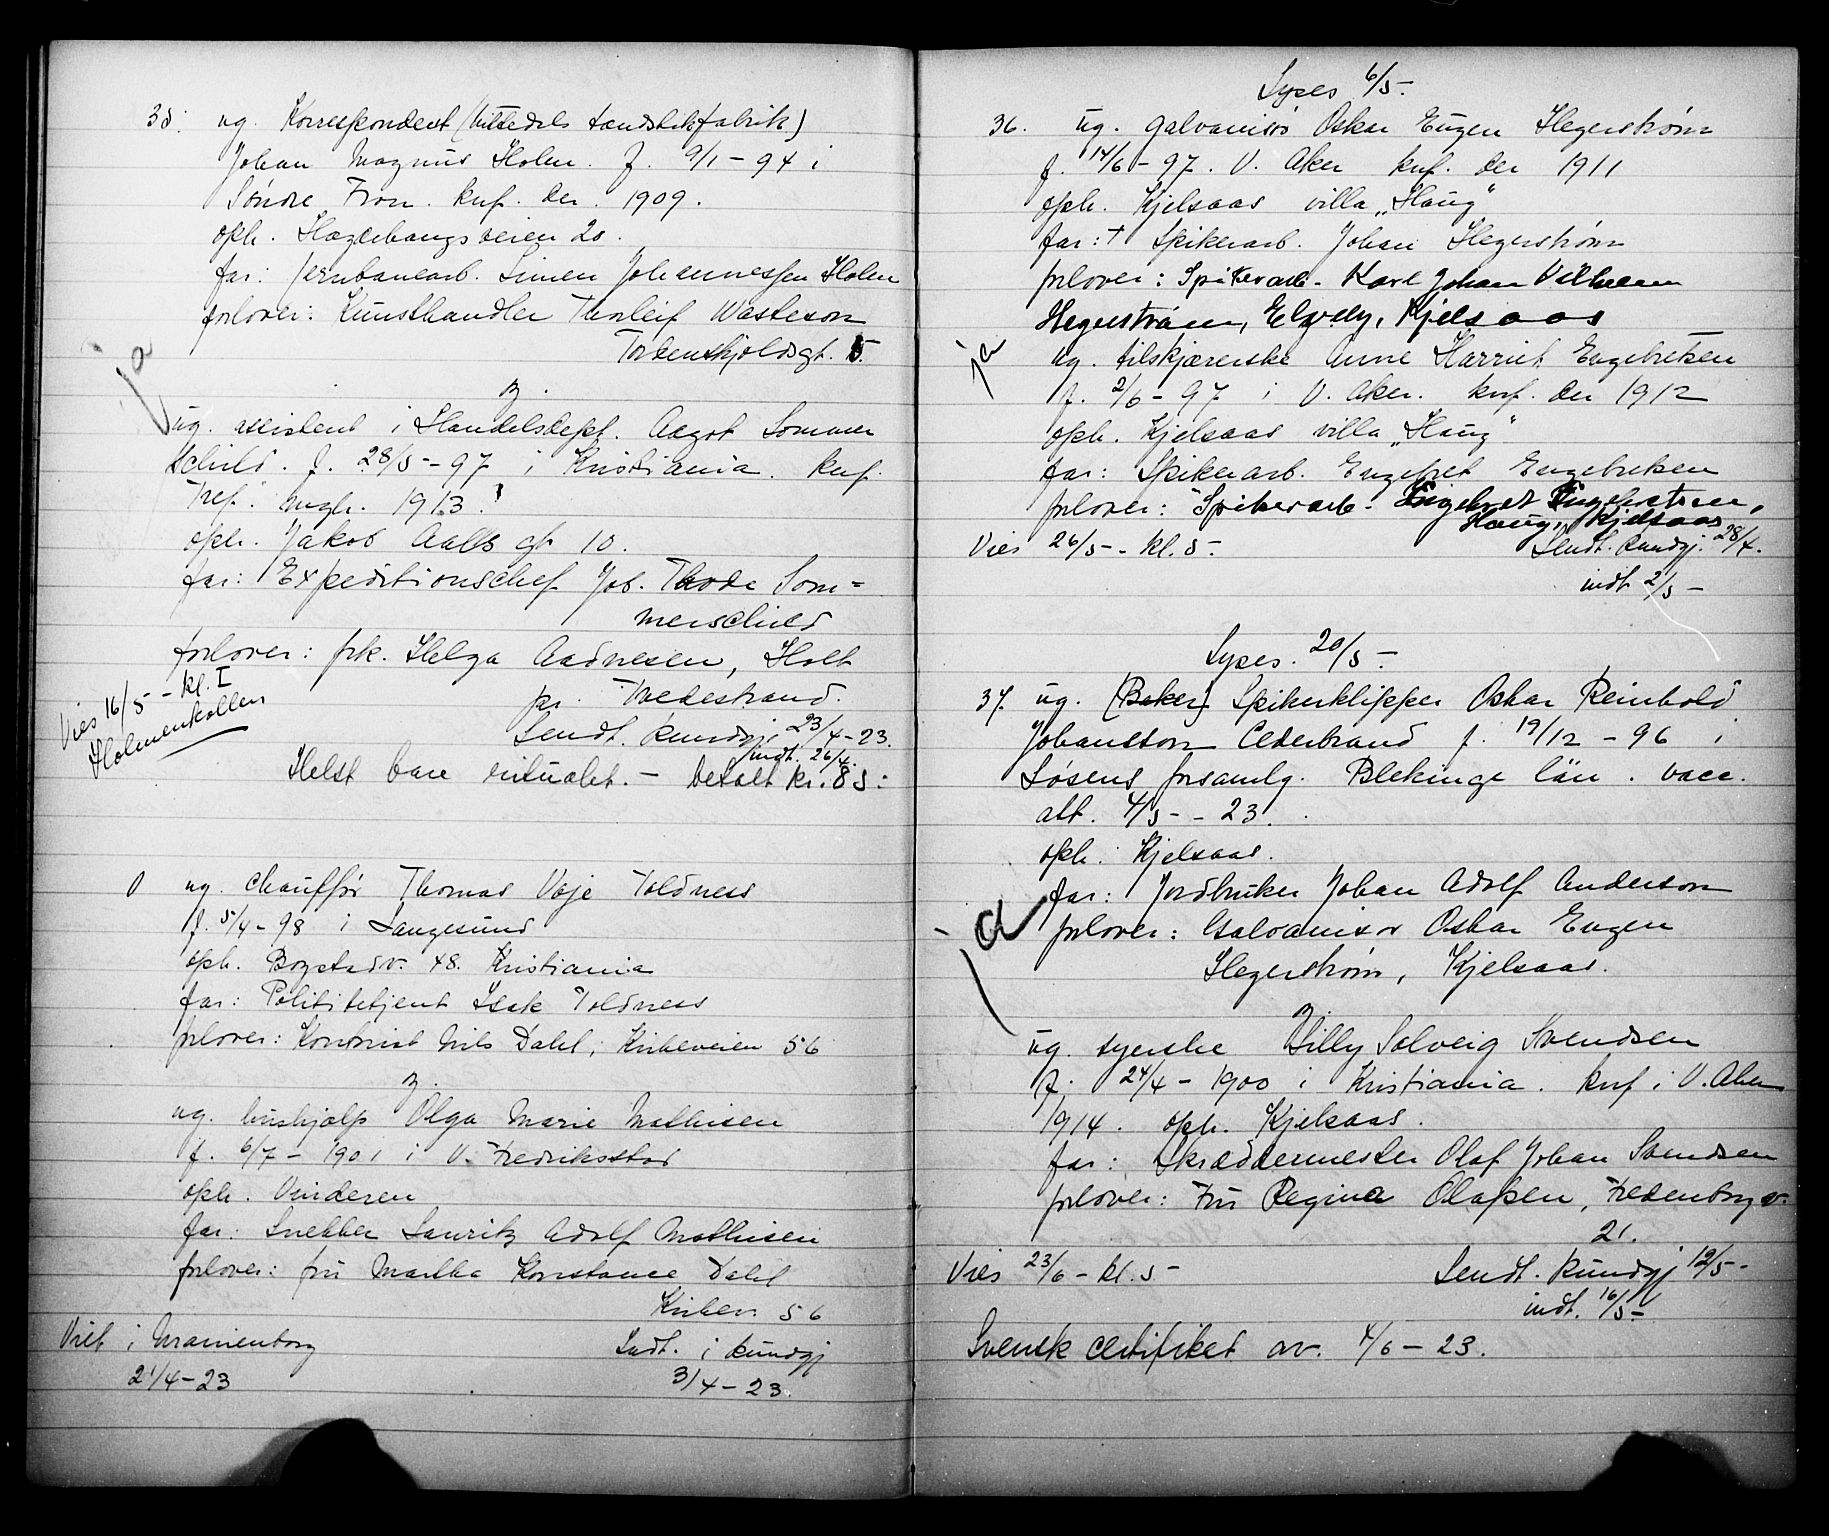 35. ug. Korrespondent (Nittedals tændstikfabrik)
Johan Magnus Holen. f. 9/1-94 i
Søndre Fron. knf. der. 1909.
oph. Hagdehaugsveien 20.
far: jernbanearb. Simen Johannessen Holen
forlover: Kunsthandler Thorleif Wasteson
Tordenskjoldsgt. 5.
ja
z.
ug. assistent i Handelsdept. Aagot Sommer
schild. f. 28/5-97 i Kristiania. knf.
Tref. mgh. 1913.
oph. Jakob Aalls gt 10.
far: Expeditionschef Job. Thode Som=
merschild
forlover: frk. Helga Aadnesen, Holt
pr. Tvedestrand.
Vies 16/5 - kl. 1
Holmenkollen
Sendt. kundgj. 23/4-23.
indt. 26/4.
Helst bare ritualet. - betalt kr. 85:
0 ug. chauffør Thomas Voje Toldness
f. 5/4-98 i Langesund
oph. Bogstadv. 48. Kristiania
far: Politibetjent Isak Toldness
forlover: Kontorist Nils Dahl, Kirkeveien 56
z.
ug. hushjælp Olga Marie Mathisen
f. 6/7-1901 i V. Fredriksstad
oph. Vinderen
far: Snekker Lauritz Adolf Mathisen
forlover: fru Martha Konstance Dahl
Kirkev. 56
Viet i Uranienborg
21/4-23
Sndt. i kundgj
3/4-23.
Lyses 6/5-
36. ug. galvanisør Oskar Eugen Hegerstrøm
f. 14/6-97. V. Aker knf. der 1911
oph. Kjelsaas villa „Haug"
far: † Spikerarb. Johan Hegerstrøm
forlover: Spikerarb. Karl Johan Vilhelm
Hegerstrøm, Elvely, Kjelsaas
ja
ug. tilskjærerske Anne Harriet Engebretsen
f. 2/6-97 i V. Aker. knf. der 1912
oph. Kjelsaas villa „Haug"
far: Spikerarb. Engebret Engebretsen
forlover: Spikerarb. Engebret Engebretsen,
Haug, Kjelsaas
Vies 26/5- kl. 5.
Sendt. kundgj. 28/4.
indt 2/5-
Lyses. 20/5-
37. ug. (Baker) Spikerklipper Oskar Reinhold
Johansson Cederbrand f. 19/12-96 i
Løsens forsamlg. Blekinge län. vacc.
att. 4/5--23.
oph. Kjelsaas.
far: Jordbruker Johan Adolf Anderson
ja
forlover: Galvanisør Oskar Eugen
Hegerstrøm, Kjelsaas.
z.
ug. syerske Lilly Solveig Svendsen
f. 24/4-1900 i Kristiania. knf i V. Aker
1914. oph. Kjelsaas.
far: Skræddermester Olaf Johan Svendsen
forlover: Fru Regine Olafsen, Fredenborgv.
21.
Vies 23/6-kl. 5-
Sendt. kundgj 12/5-
indt. 16/5-
Svensk certifiket av. 4/6-23.